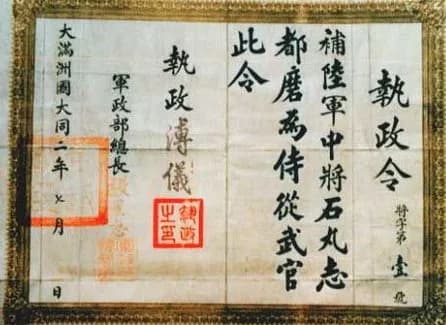 執政令
將字第壹號
補陸軍中將石丸志
都磨為侍從武官
此令
執政溥儀
執政之印
軍政部總長張景惠
大滿洲國大同二年七月 日